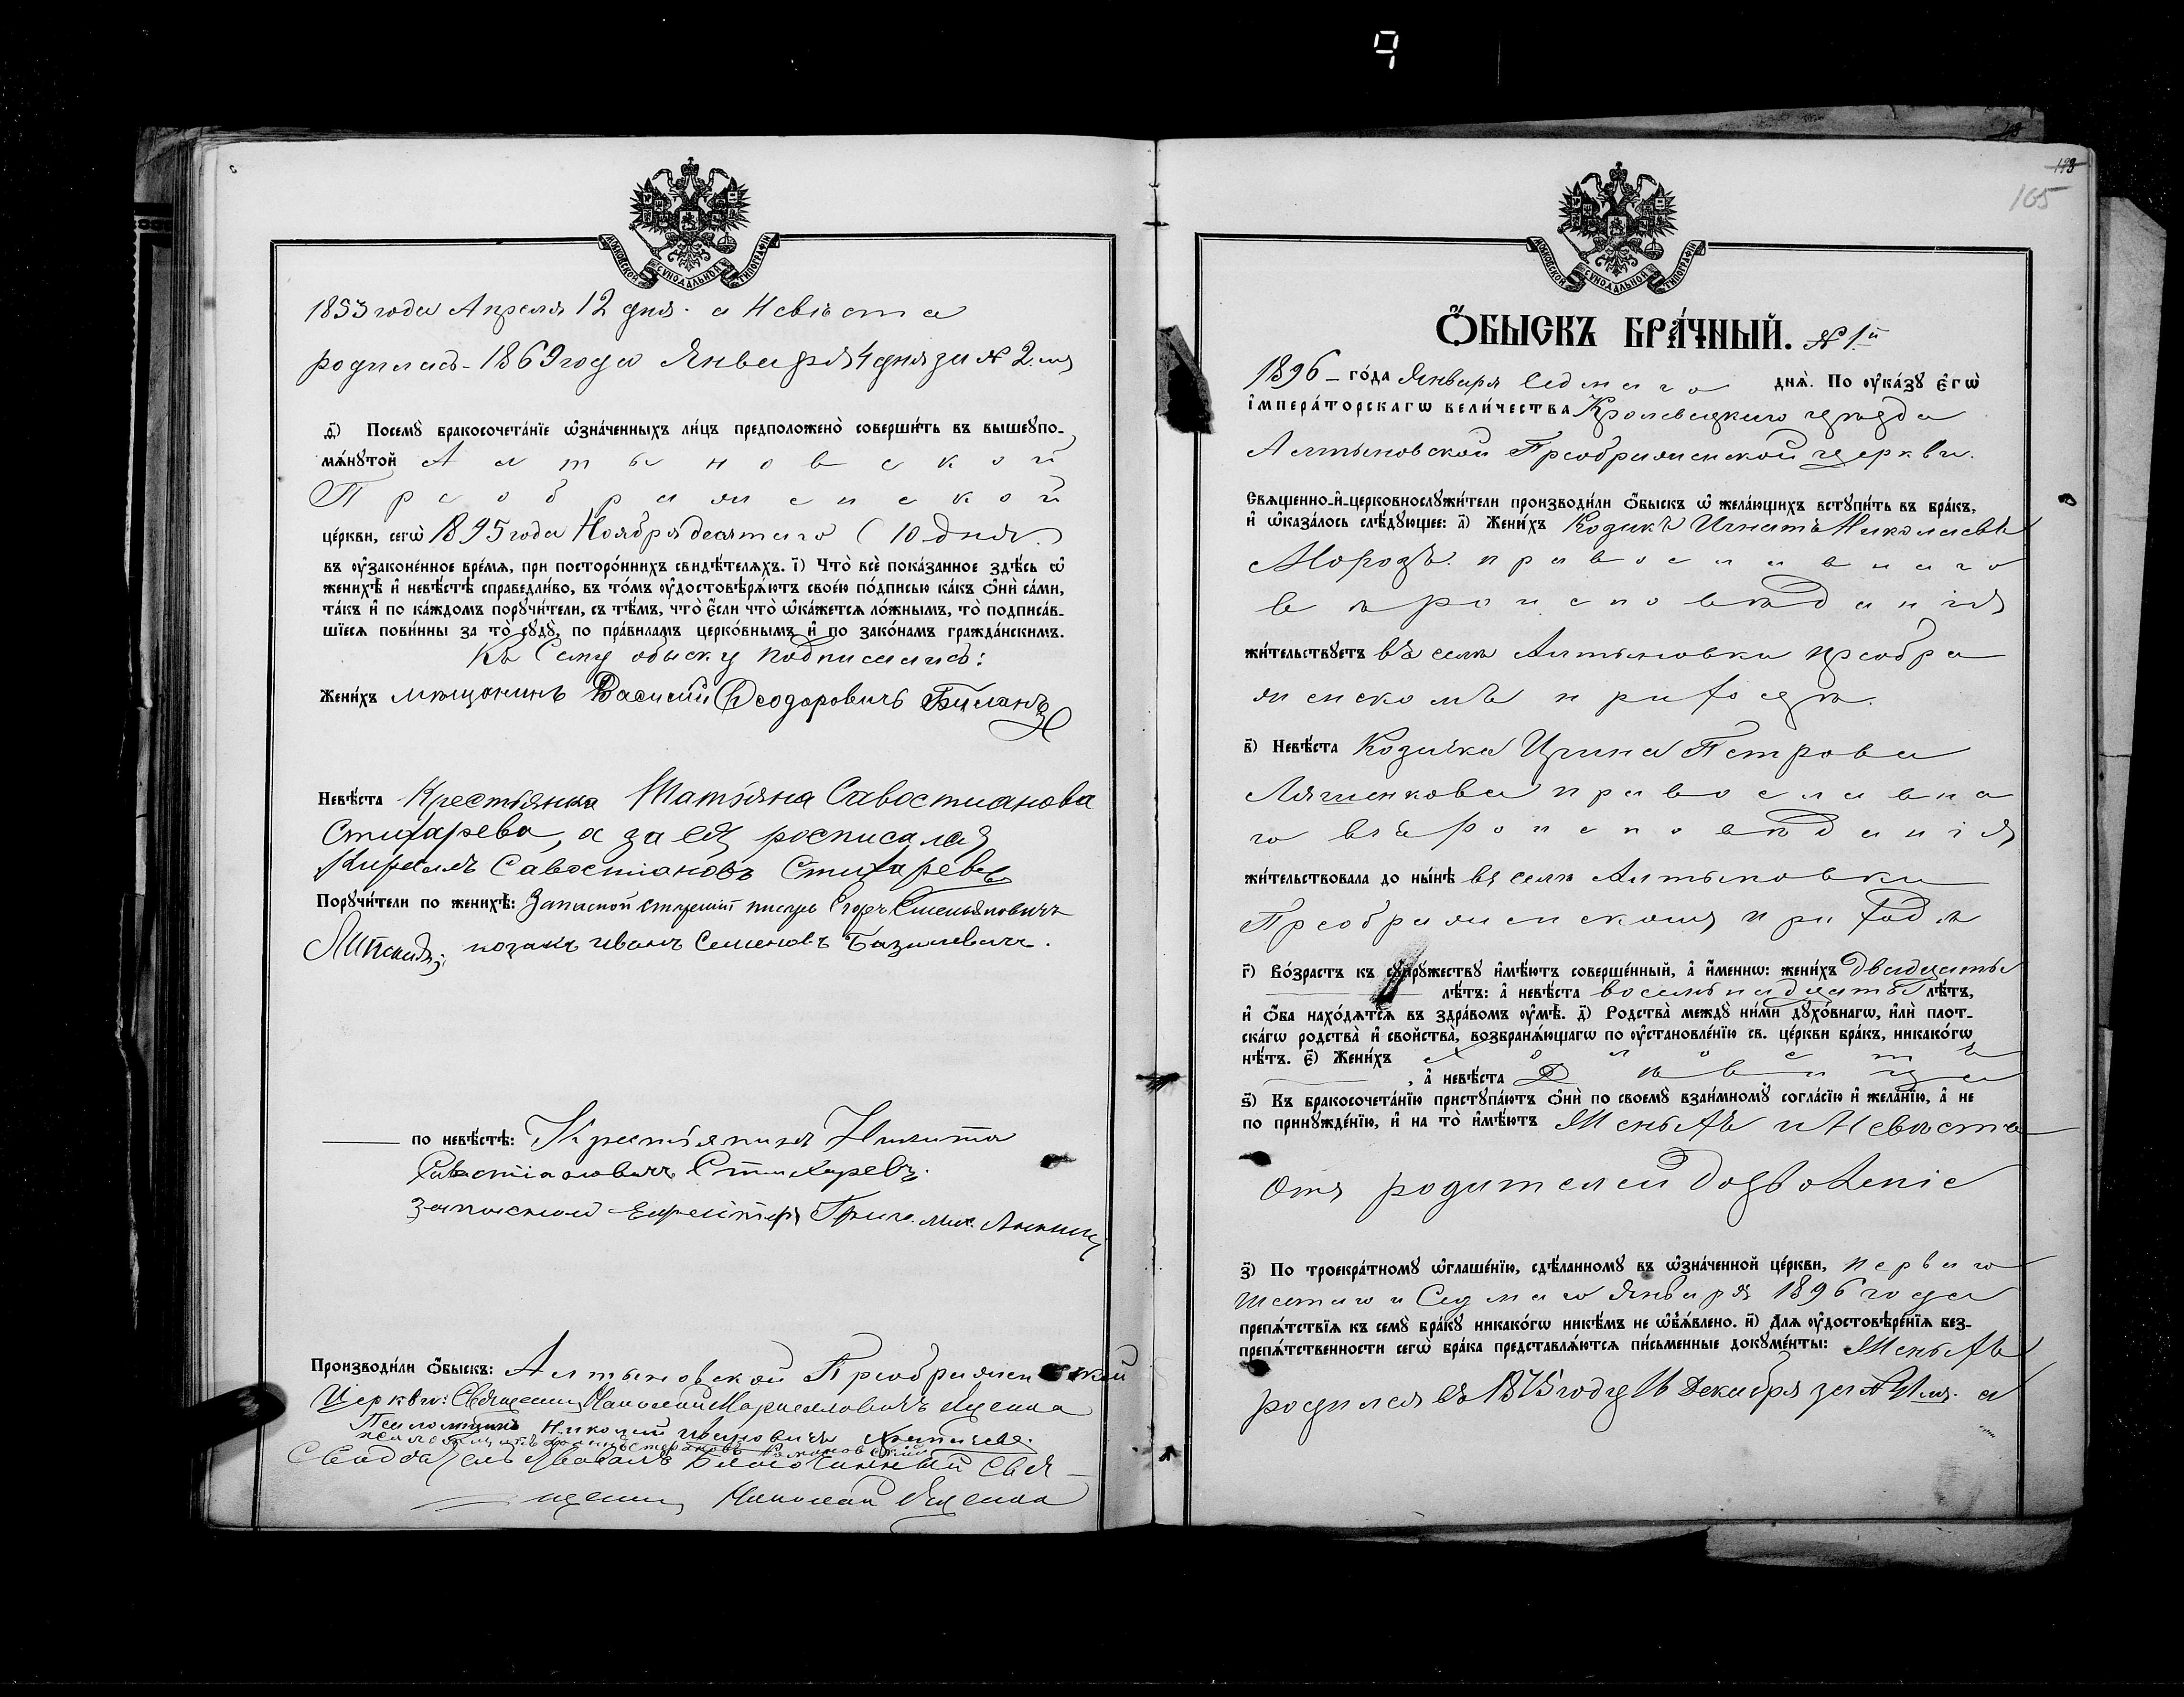 МОСКОВСКОЙ СѴНОДАЛЬНОЙ ТИПОГРАФІИ
1853 года Апреля 12 дня. а Невѣста
родилась - 1869 года Января 4 дня за № 2.мъ
д҃) Посемꙋ бракосочета́нїе ѡ҆зна́ченныхъ ли́цъ предположено̀ соверши́ть въ вышеꙋпо-
мѧ́нꙋтой Алтыновской
Преображенской
це́ркви, сегѡ̀ 1895 года Ноября десятаго (10 дня.)
въ ᲂу҆зако́ненное вре́мѧ, при посторо́ннихъ свидѣ́телѧхъ. і҃) Что̀ всѐ пока́занное здѣ́сь ѡ҆
женихѣ̀ и҆ невѣ́стѣ справедли́во, въ то́мъ ᲂу҆достовѣрѧ́ютъ свое́ю по́дписью ка́къ ѻ҆нѝ са́ми,
та́къ и҆ по ка́ждомъ порꙋчи́тели, съ тѣ́мъ, что̀ є҆́сли что̀ ѡ҆ка́жетсѧ ло́жнымъ, то̀ подписа́в-
шїесѧ пови́нны за то̀ сꙋдꙋ̀, по пра́вилamъ церко́внымъ и҆ по зако́намъ гражда́нскимъ.
Къ Сему обыску подписались:
Жени́хъ мѣщанинъ Василий Феодоровичъ Биланъ
Невѣ́ста Крестьянка Татьяна Савостианова
Стихарева, а за ея росписался
Кирилъ Савостіановъ Стихаревъ
Порꙋчи́тели по женихѣ̀: Запасной старшій писарь Егоръ Емельяновичъ
козакъ иванъ Семеновъ Базилевичъ.
по невѣ́стѣ: Крестьянинъ Никита
Савостіановичъ Стихаревъ.
запасной Ефрейторъ Григо. Мих.
Производи́ли ѻ҆́быскъ: Алтыновской Преображенской
Церкви: Священникъ Николай
Псаломщикъ Николай Ивановичъ
Благочинный Свя-
щенникъ Николай
165
МОСКОВСКОЙ СѴНОДАЛЬНОЙ ТИПОГРАФІИ
Ѻ҆́БЫСКЪ БРА́ЧНЫЙ. № 1й
1896 - го́да Января Седмаго днѧ̀. По ᲂу҆ка́зꙋ є҆гѡ̀
і҆мпера́торскагѡ вели́чества Кролевецкаго уѣзда
Алтыновской Преображенской церкви.
Свѧще́нно-и҆-церковнослꙋжи́тели производи́ли ѻ҆́быскъ ѡ҆ жела́ющихъ встꙋпи́ть въ бра́къ,
и҆ ѡ҆каза́лось слѣ́дꙋющее: а҃) Жени́хъ Козакъ Игнатъ Николаевъ
Морозъ. православнаго
вѣроисповѣданія
жи́тельствꙋетъ въ селѣ Алтыновки Преобра
женскомъ приходѣ.
в҃) Невѣ́ста Козачка Ирина Петрова
Ляшенкова православна
го вѣроисповѣданія
жи́тельствовала до ны́нѣ въ селѣ Алтыновки
Преображенскомъ приходѣ
г҃) Во́зрастъ къ сꙋпрꙋ́жествꙋ и҆мѣ́ютъ соверше́нный, а҆ и҆́менно: жени́хъ двадцать
лѣ́тъ: а҆ невѣ́ста восемьнадцать лѣ́тъ,
и҆ ѻ҆́ба нахо́дѧтсѧ въ здра́вомъ ᲂу҆мѣ̀. д҃) Родства̀ междꙋ̀ ни́ми дꙋхо́внагѡ, и҆лѝ плот-
ска́гѡ родства̀ и҆ свойства̀, возбранѧ́ющагѡ по ᲂу҆становле́нїю св. це́ркви бра́къ, никако́гѡ
нѣ́тъ. є҃) Жени́хъ холостъ
, а҆ невѣ́ста Дѣвица
ѕ҃) Къ бракосочета́нїю пристꙋпа́ютъ ѻ҆нѝ по своемꙋ̀ взаи́мномꙋ согла́сїю и҆ жела́нїю, а҆ не
по принꙋжде́нїю, и҆ на то̀ и҆мѣ́ютъ Женихъ и Невѣста
Отъ родителей дозволеніе
з҃) По троекра́тномꙋ ѡ҆глаше́нїю, сдѣ́ланномꙋ въ ѡ҆зна́ченной це́ркви, перваго
шестаго и Седмаго Января 1896 года
препѧ́тствїѧ къ семꙋ̀ бра́кꙋ никако́гѡ никѣ́мъ не ѡ҆б̾ѧ́влено. и҃) Для ᲂу҆достовѣре́нїѧ без-
препѧ́тственности сегѡ̀ бра́ка представлѧ́ютсѧ пи́сьменные докꙋме́нты: Женихъ
родился въ 1875 году 16 Декабря за № 41мъ. а